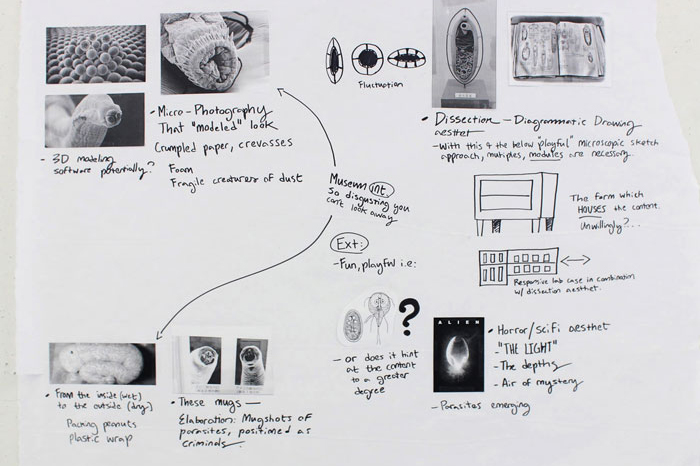 • Micro-Photography
That "modeled" look
Crumpled paper, crevasses
Foam
Fragile creatures of dust
- 3D modeling
software potentially?
Fluctuation
• Dissection - Diagrammatic Drawing
aesthet
- With this & the below "playful" microscopic sketch
approach, multiples, modules are necessary.
Museum int.
So disgusting you
can't look away
The form which
HOUSES the content.
Unwillingly?...
Ext:
- Fun, playful i.e:
Responsive lab case in combination
w/ dissection aesthet.
?
- or does it hint
at the content
to a greater
degree
ALIEN
• Horror/scifi aesthet
- "THE LIGHT"
- The depths
- Air of mystery
- Parasites emerging
• From the inside (wet)
to the outside (dry)
Packing peanuts
plastic wrap
• These mugs —
Elaboration: Mugshots of
parasites, positioned as
criminals